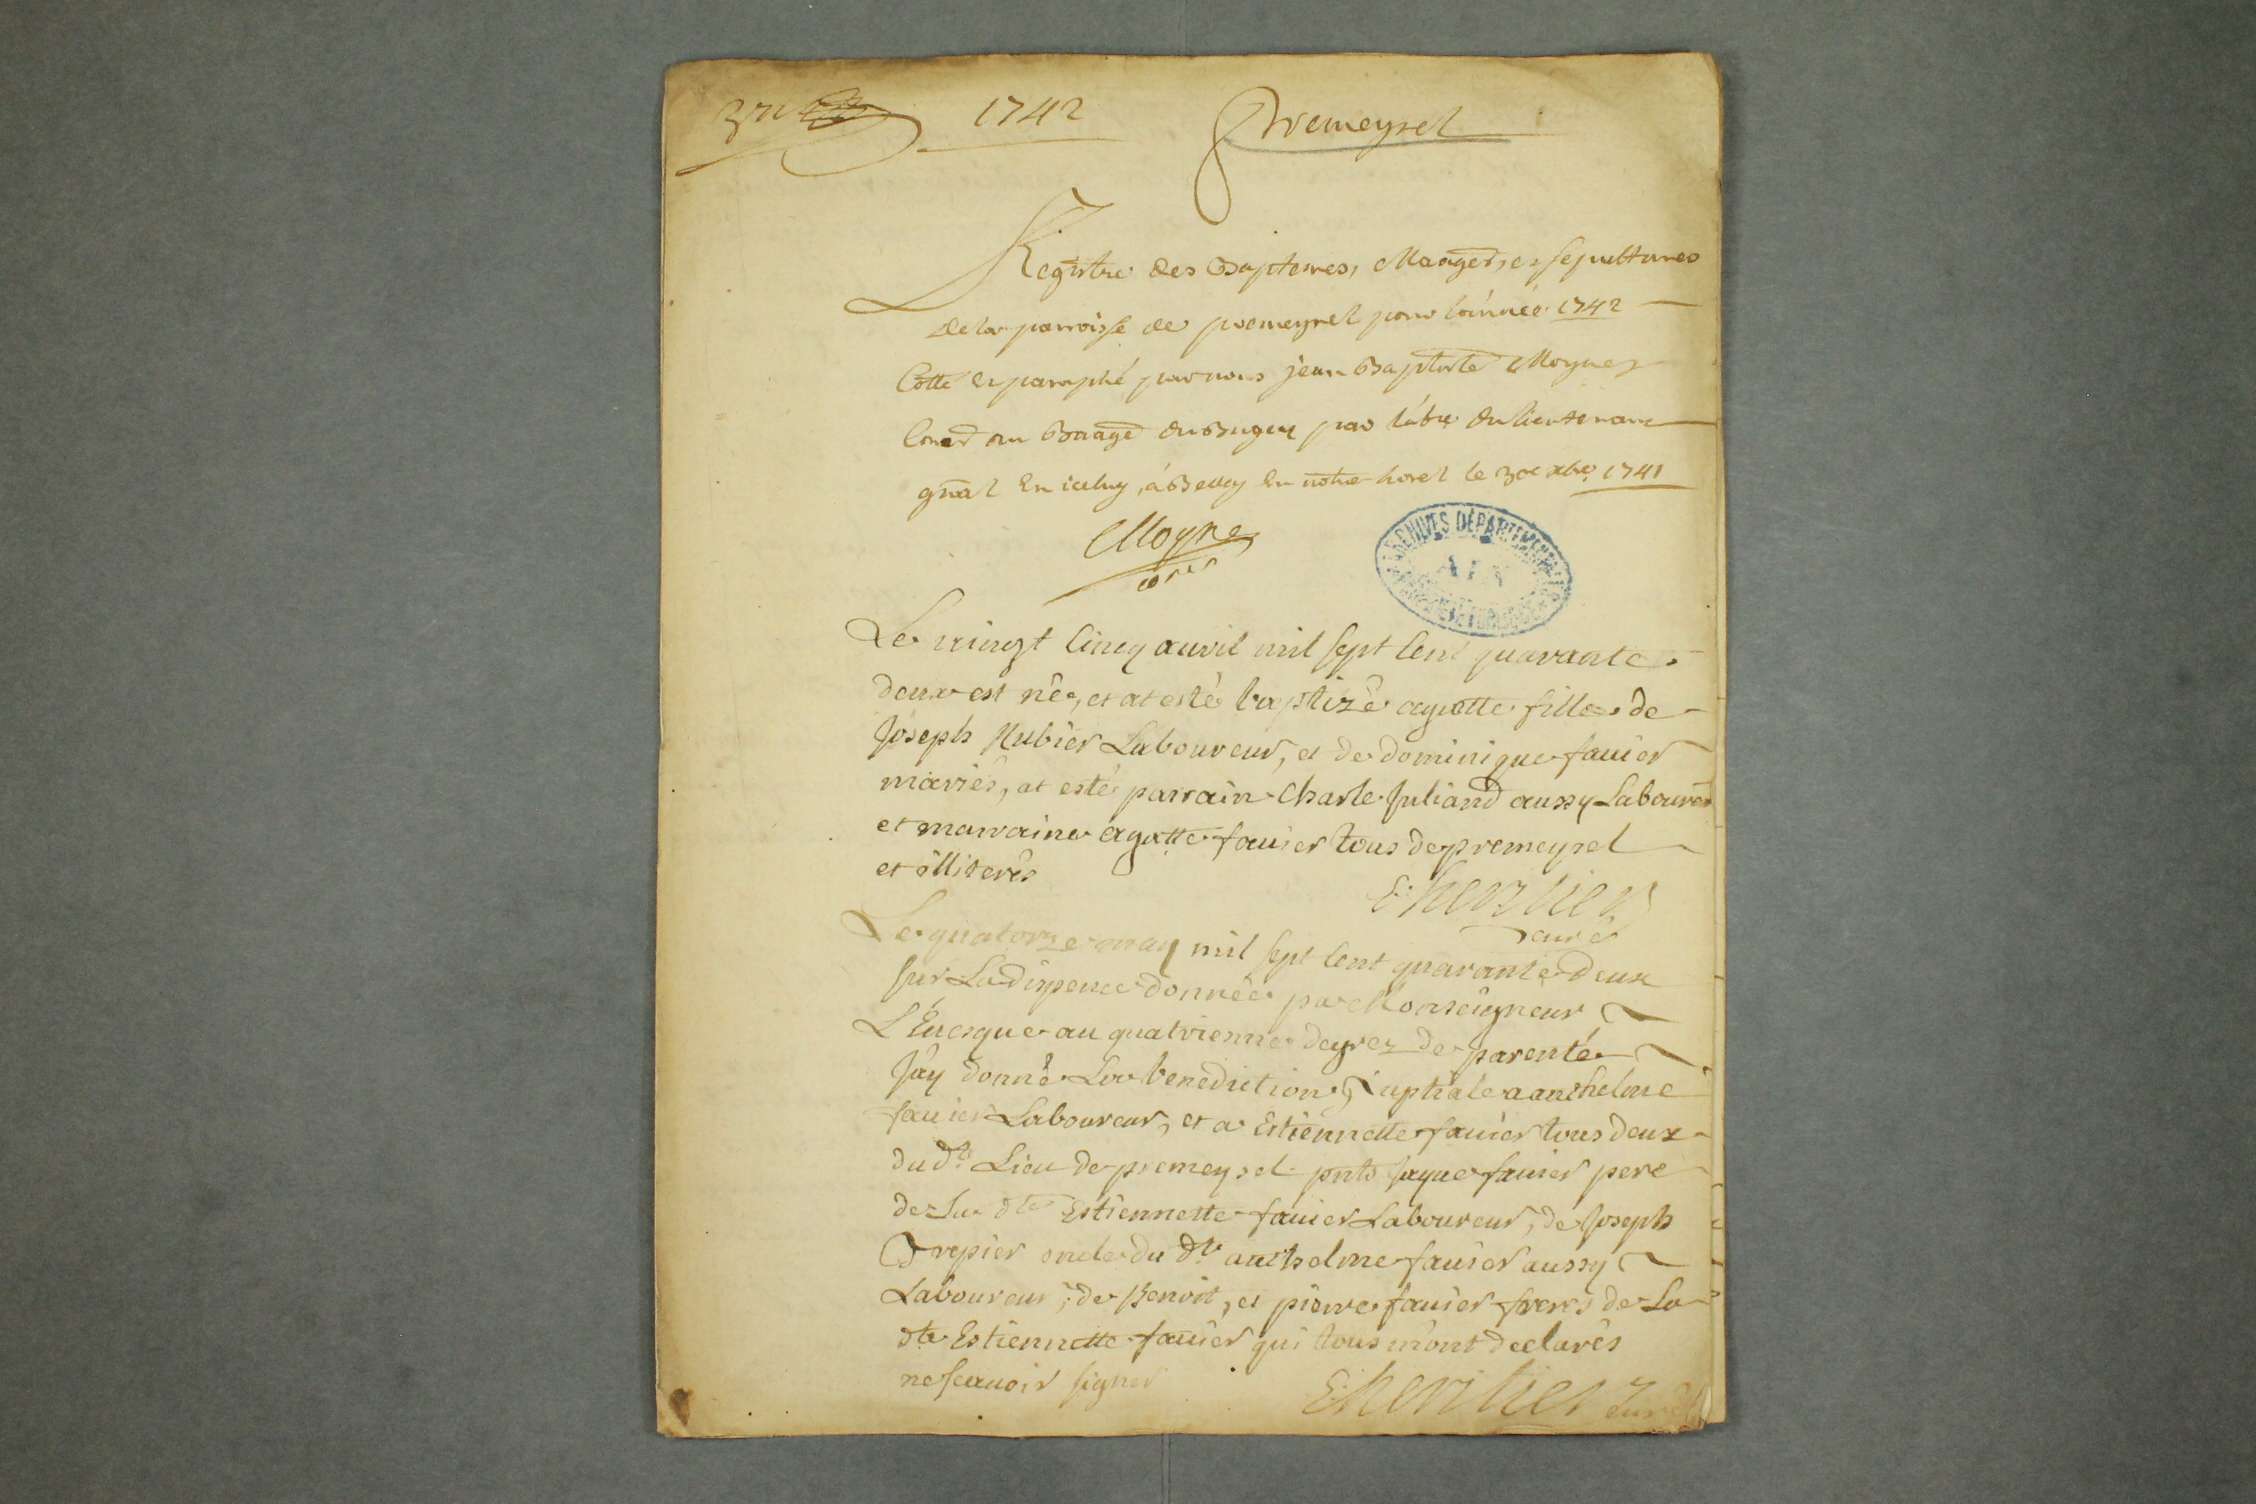 1742
Premeysel
Registre des Baptemes, Mariages, et sepultures
de la parroisse de premeysel pour l'année 1742
Cotté et paraphé par nous jean Baptiste Moyne
Coner au Bāage du Bugey par l'abce du lieutenant
gnāl En iceluy, à Belley En notre hotel le 30e xbre 1741
Moyne
coner
ARCHIVES DÉPARTEMENTALES
AIN
Le vingt Cinq auvil mil sept Cent quarante
deux est née, et at esté baptizé agatte fille de
Joseph Rubier Laboureur, et de dominique fauier
mariés, at esté parrain Charle Juliand aussy Laboureur
et marraine agatte fauier tous de premeysel
et illiterés
E. hervier
curé
Le quatorze may mil sept Cent quarante deux
sur La dispence donnée par Monseigneur
L'Euesque au quatriesme degrez de parenté
J'ay donné La benediction Nuptiale a anthelme
fauier Laboureur, et a Estiennette fauier tous deux
du dt Lieu de premeysel pnts Jaque fauier pere
de La dte Estiennette fauier Laboureur, de Joseph
Trepier oncle du dt anthelme fauier aussy
Laboureur, de Benoit, et pierre fauier freres de La
dte Estiennette fauier qui tous m'ont declarés
ne scauoir signer
E. hervier curé